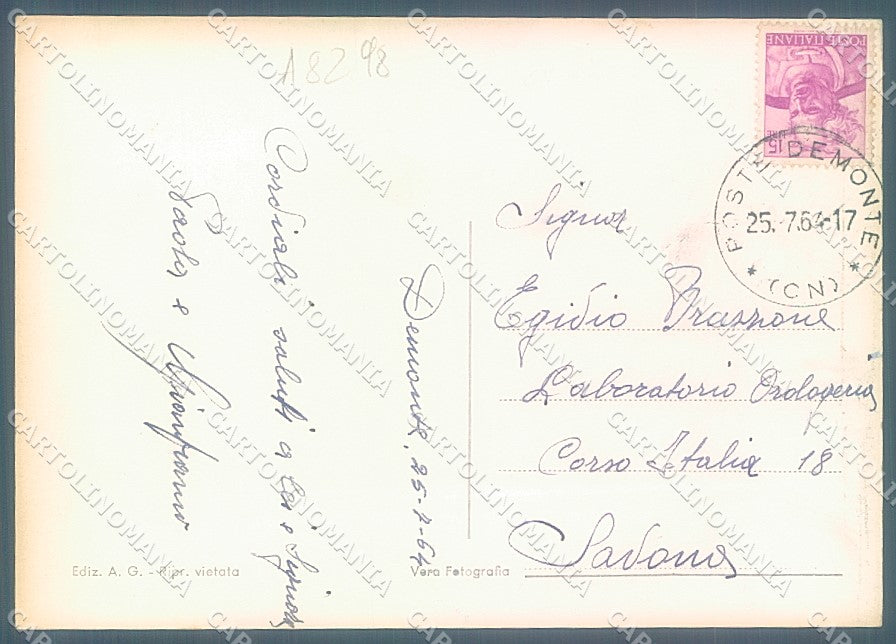 A8298
POSTE ITALIANE
LIRE 15
POSTE DEMONTE
25.-7.64-17
(CN)
Demonte, 25-7-64
Cordiali saluti a Lei e Signora
Paola e Gianfranco
Signor
Egidio Brazzone
Laboratorio Orologeria
Corso Italia 18
Savona
Ediz. A. G. - Ripr. vietata
Vera Fotografia
CARTOLINOMANIA